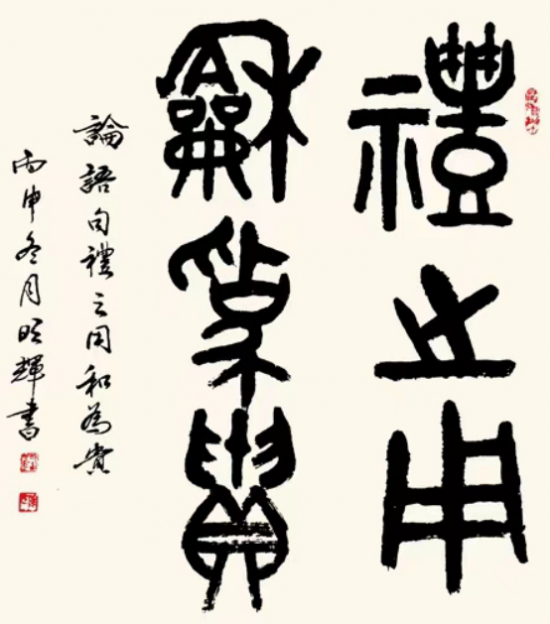 禮之用
龢為貴
論語句禮之用和為貴
丙申冬月昭輝書